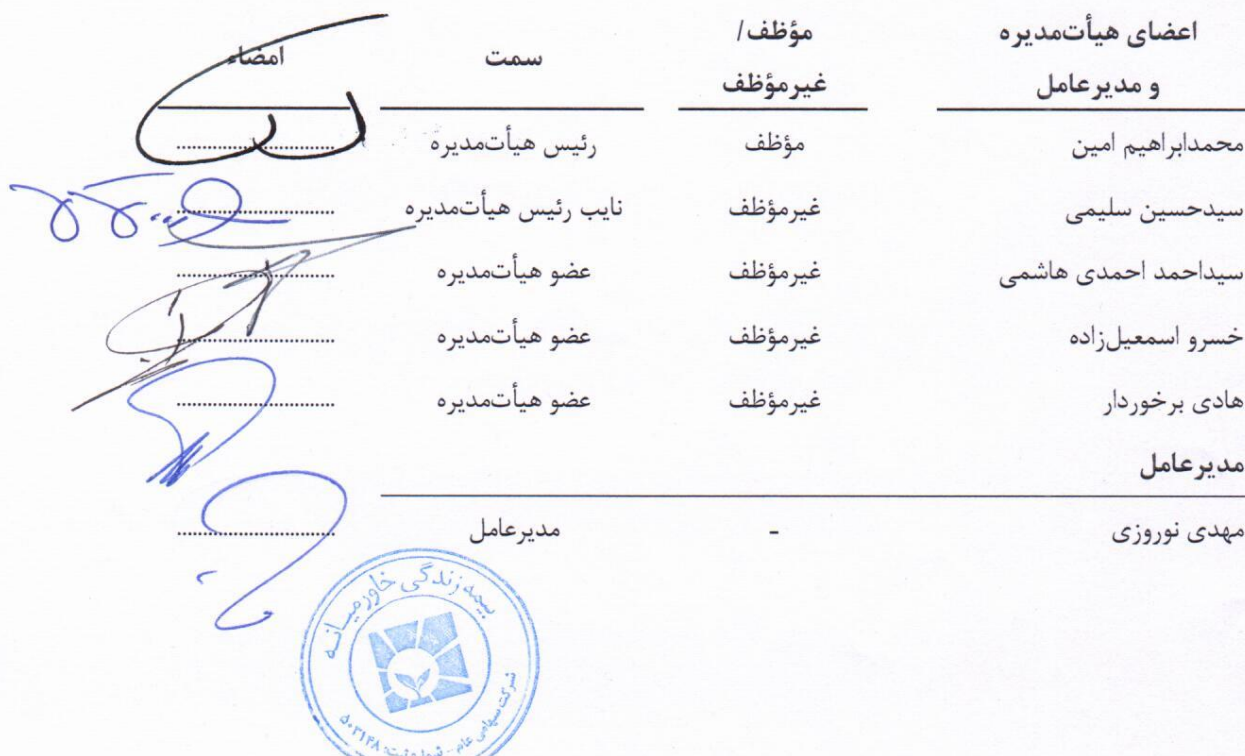 اعضای هیأت‌مدیره و مدیرعامل مؤظف/ غیرمؤظف سمت امضاء
محمدابراهیم امین مؤظف رئیس هیأت‌مدیره
سیدحسین سلیمی غیرمؤظف نایب رئیس هیأت‌مدیره
سیداحمد احمدی هاشمی غیرمؤظف عضو هیأت‌مدیره
خسرو اسمعیل‌زاده غیرمؤظف عضو هیأت‌مدیره
هادی برخوردار غیرمؤظف عضو هیأت‌مدیره
مدیرعامل
مهدی نوروزی - مدیرعامل
بیمه زندگی خاورمیانه
شرکت سهامی عام - شماره ثبت: ۵۰۳۱۴۸